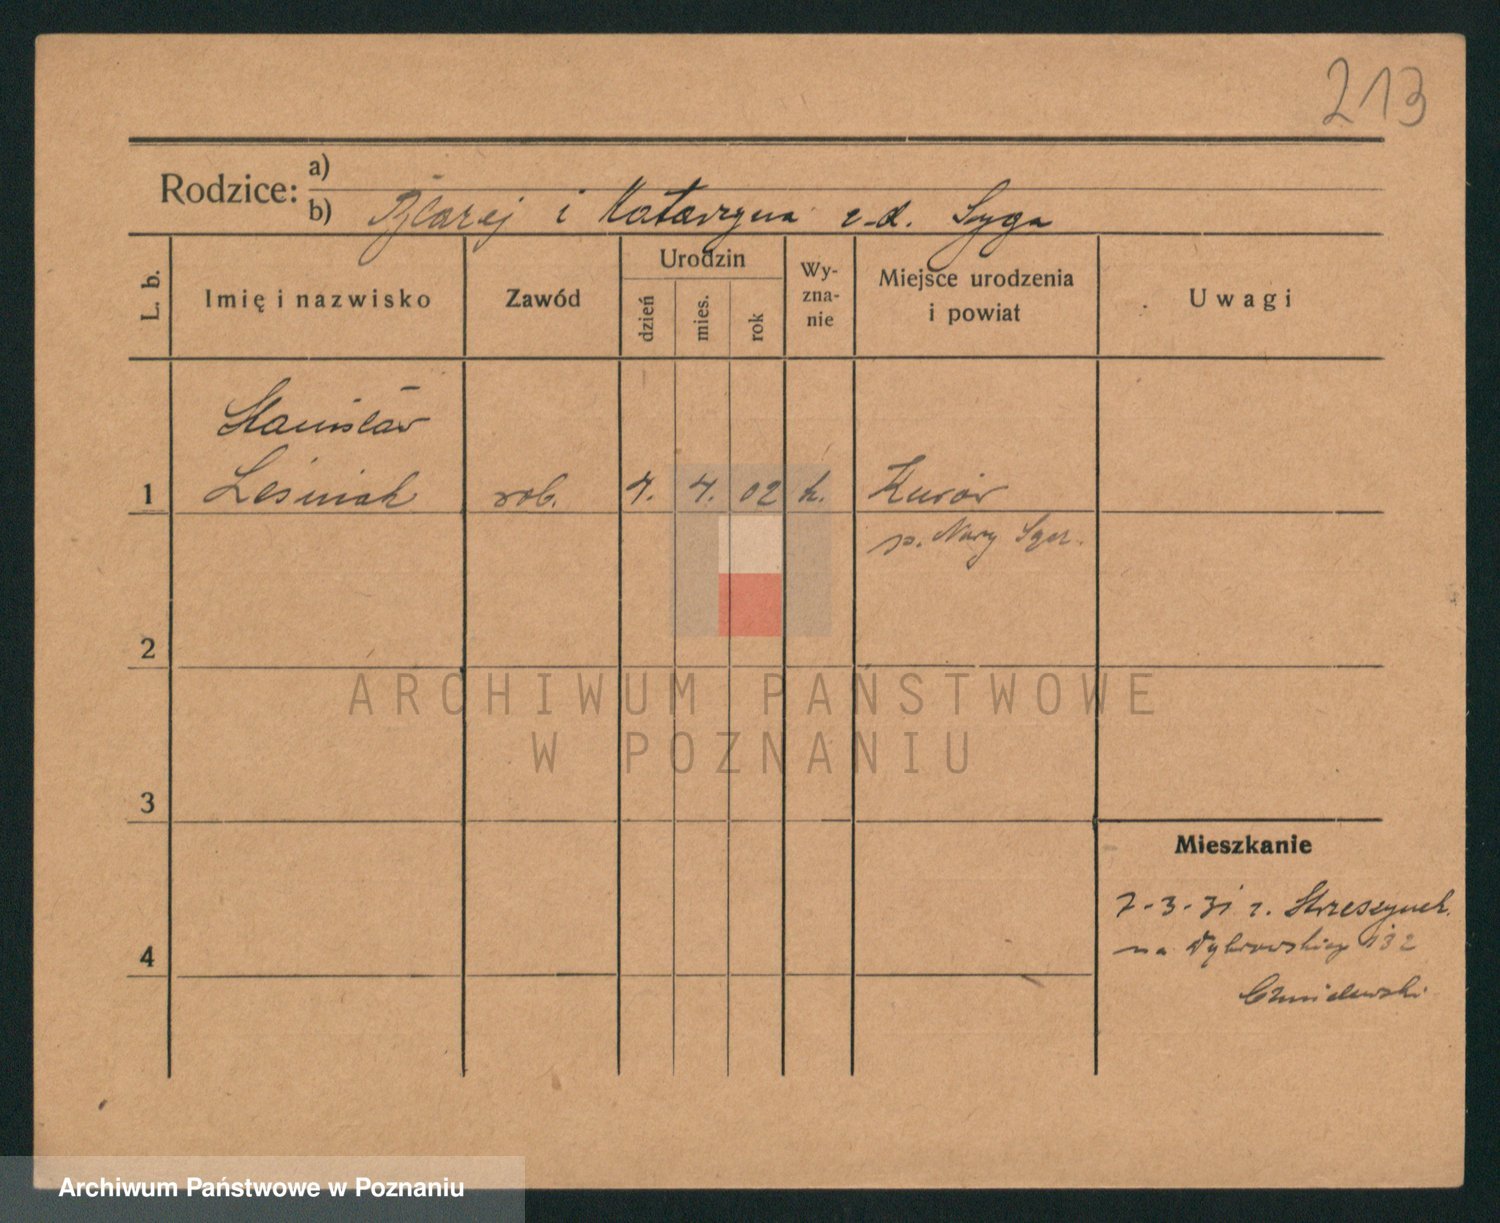 213
Rodzice:
a)
b) Błażej i Katarzyna z-d. Syga
L. b.
Imię i nazwisko
Zawód
Urodzin
dzień
mies.
rok
Wy-
zna-
nie
Miejsce urodzenia
i powiat
Uwagi
Stanisław
1 Leśniak rob. 4. 4. 02 k. Kurów
p. Nowy
2
3
4
Mieszkanie
7-3-31 z. Strzeszynek.
na Dąbrowskiego 132
Chmielewski
ARCHIWUM PAŃSTWOWE
W POZNANIU
Archiwum Państwowe w Poznaniu